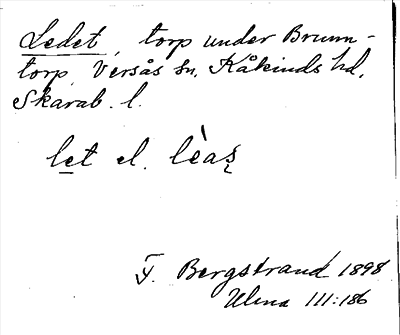 Ledet, torp under Brum-
torp, Versås sn, Kåkinds hd,
Skarab. l.
let el. lèas̨
F. Bergstrand 1898
Ulma III:186